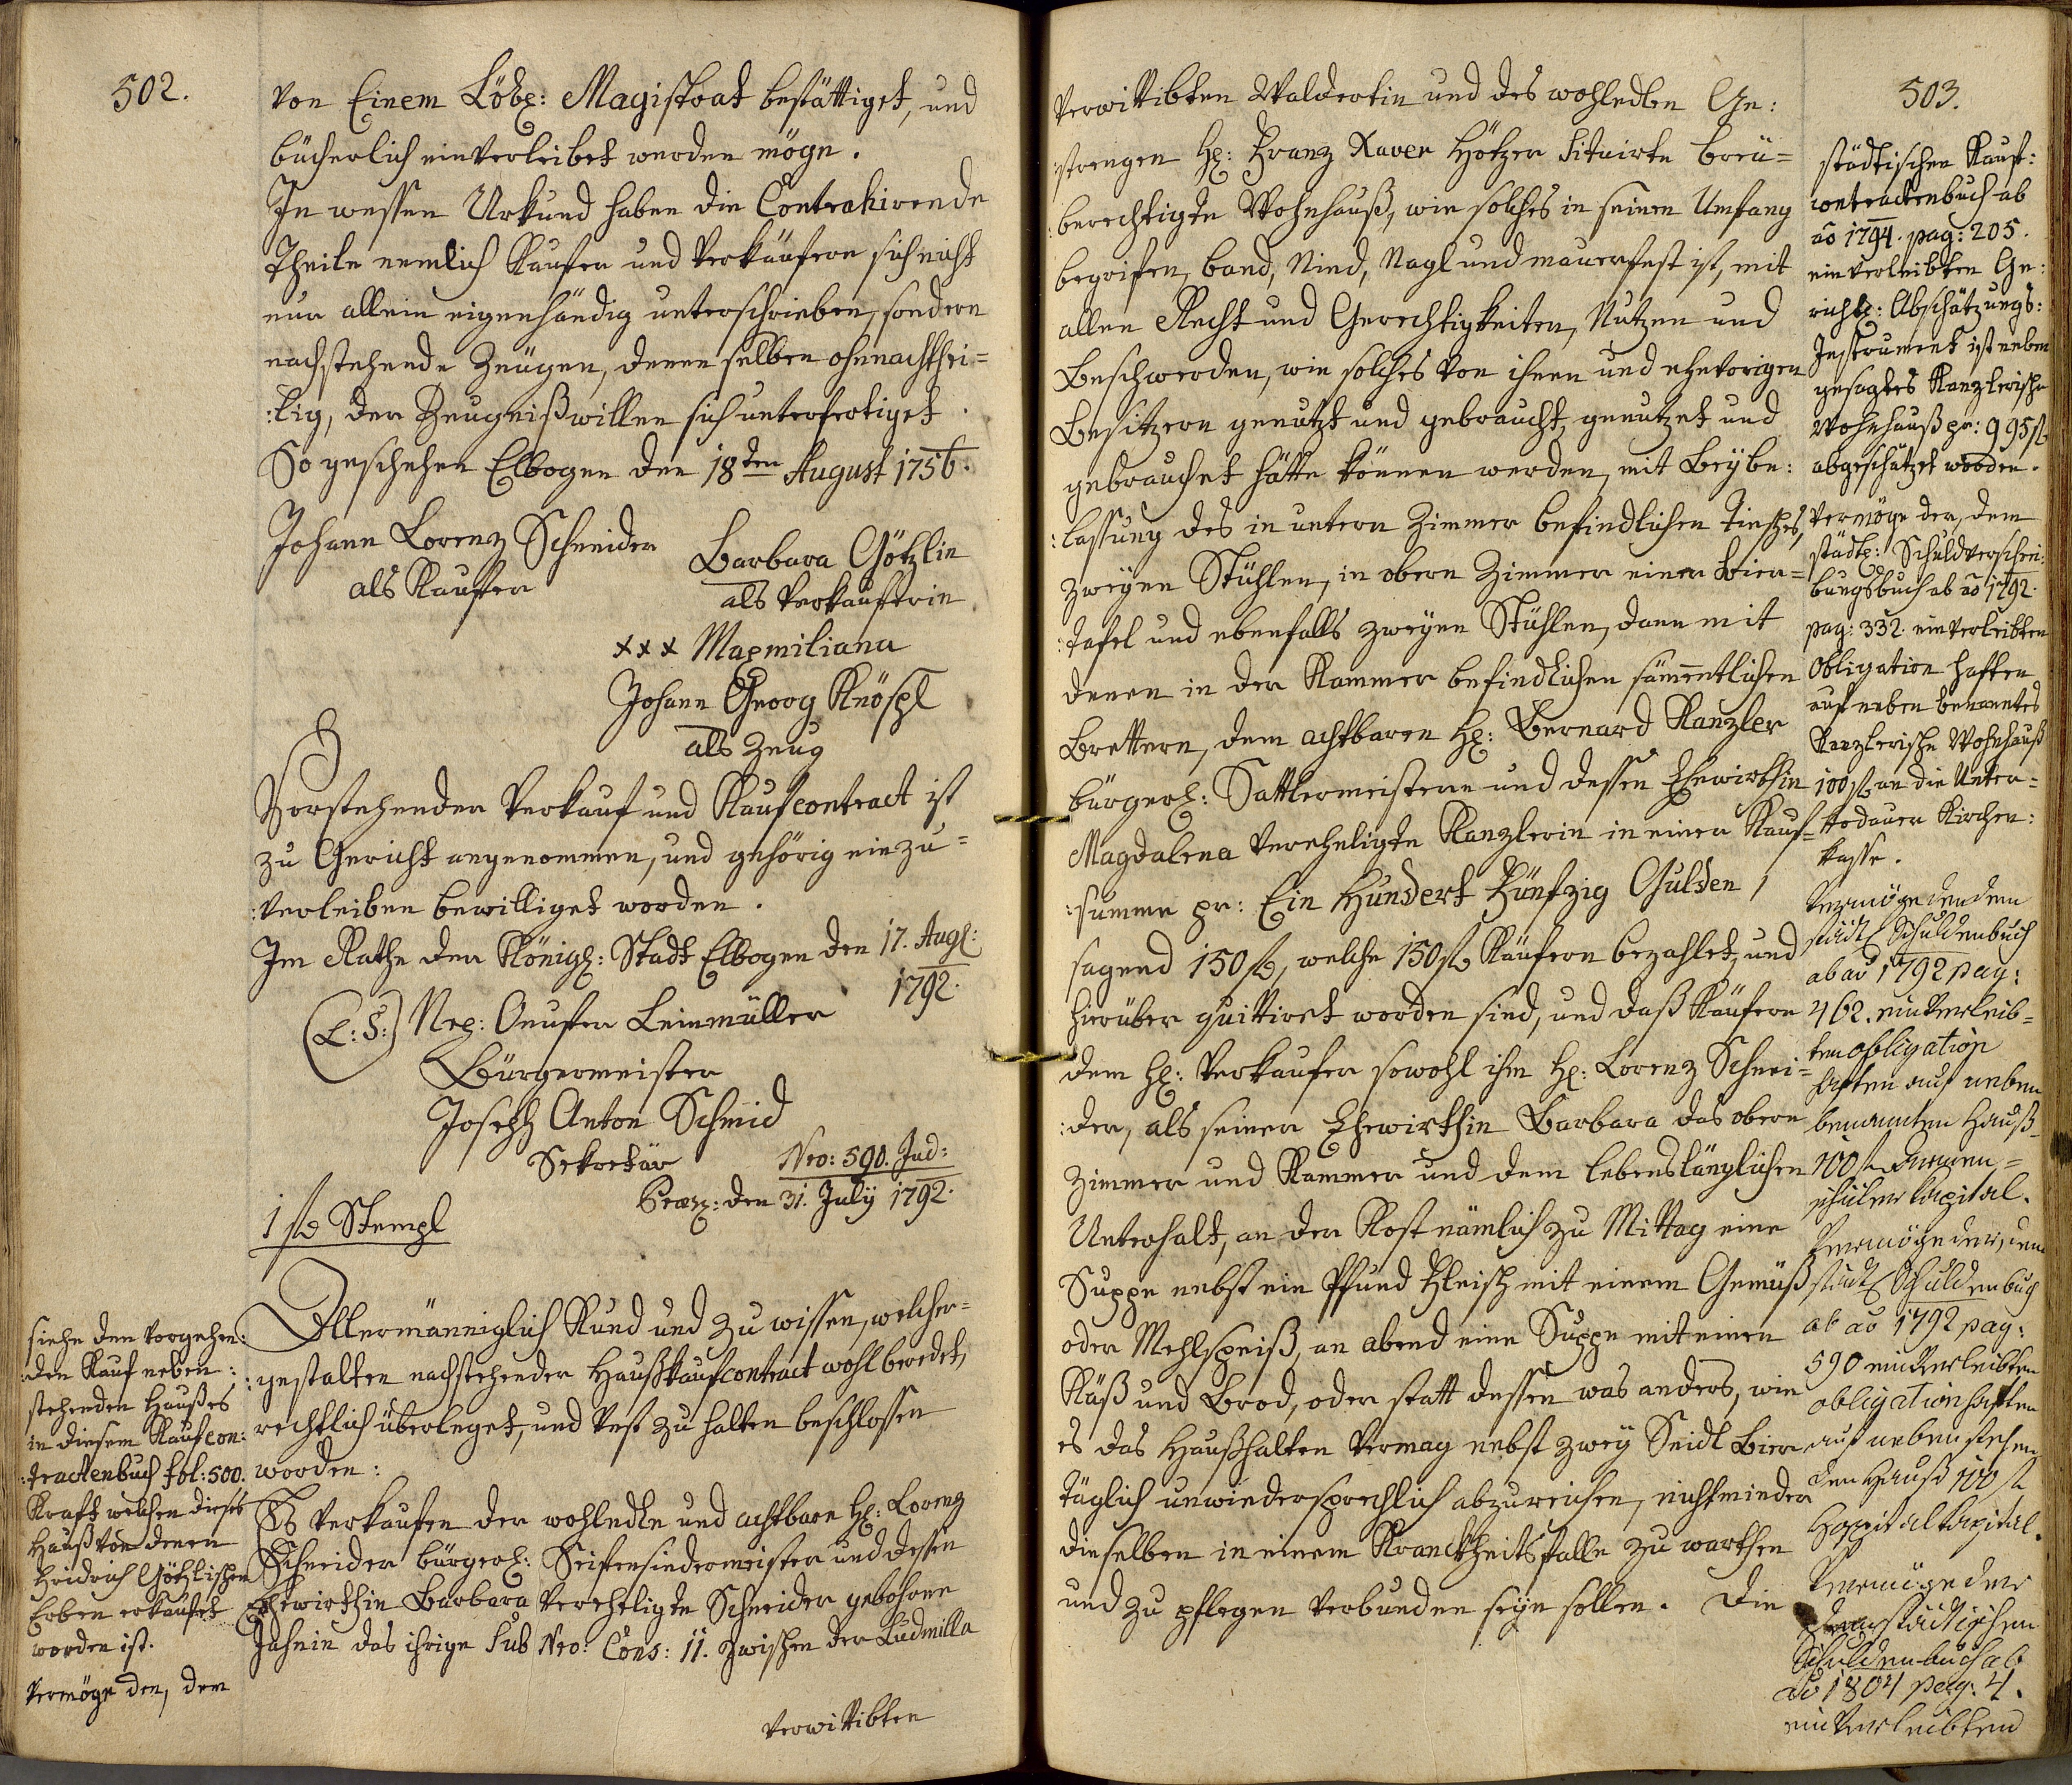 502.
von Einem Löbl: Magistrat bestättiget, und
bücherlich einverleibet werden möge.
In wessen Urkund haben die Contrahirende
Theile nemlich Kaufer und Verkäufern sich nicht
nur allein eigenhändig unterschrieben, sondern
nachstehende Zeugen, denen selben ohnnachthei=
:lig, der Zeugniß willen sich unterfertiget.
So geschehen Elbogen den 18ten August 1756.
Johann Lorenz Schneider
als Kaufer
Barbara Götzlin
als Verkaufferin
xxx Maxmiliana
Johann Georg Knöspl
als Zeug
Vorstehender Verkauf und Kaufcontract ist
zu Gericht angenommen, und gehörig einzu=
:verleiben bewilliget worden.
Im Rathe der Königl: Stadt Elbogen den 17. Augl:
1792.
(L: S:) Nep: Leinmüller
Bürgermeister
Joseph Anton Schmid
Sekretär
Nro: 590. Jud:
Praes: den 31. July 1792.
1 f Stempl
Allermänniglich Kund und zu wissen, welcher=
:gestalten nachstehender Haußkaufcontract wohl beredet,
rechtlich überleget, und vest zu halten beschlossen
worden:
Es verkaufen der wohledle und achtbare H: Lorenz
Schneider bürgerl: Seifensiedermeister und dessen
Ehewirthin Barbara verehligte Schneider gebohrne
Jahnin das ihrige sub Nro: Cons: 11. zwischen der Ludmilla
verwittibten
siehe den vorgehen:
:den Kauf neben:
stehenden Haußes
in diesem Kaufcon:
:tractenbuch fol: 500.
Kraft welchen dieses
Hauß von denen
Fridrich Götzlischen
Erben erkaufet
worden ist.
Vermöge den, dem
503.
verwittibten Waldertin und des wohledlen Ge:
:strengen H: Franz Xaver Hötzer situirte breü=
:berechtigte Wohnhauß, wie solches in seinen Umfang
begrifen, band, Nied, Nagl und mauerfest ist, mit
allen Recht und Gerechtigkeiten, Nutzen und
Beschwerden, wie solches von ihnen und ehevorigen
Besitzern genutzt und gebraucht, genutzet und
gebrauchet hätte können werden, mit Beÿbe:
:lassung des in untern Zimmer befindlichen Tisches,
zweÿen Stühlen, in obern Zimmer einer Bier=
:tafel und ebenfalls zweÿen Stühlen, dann mit
denen in der Kammer befindlichen sämmentlichen
Brettern, dem achtbaren H: Bernard Kanzler
bürgerl: Sattlermeistern und dessen Ehewirthin
Magdalena verehligte Kanzlerin in einer Kauf=
:summe pr: Ein Hundert Fünfzig Gulden,
sagend 150 f, welche 150 f Käufern bezahlet, und
hierüber quittiret worden sind, und daß Käufern
dem H: Verkaufer sowohl ihm H: Lorenz Schnei=
:der, als seiner Ehewirthin Barbara das obern
Zimmer und Kammer und dem lebenslänglichen
Unterhalt, an der Kost nämlich zu Mittag eine
Suppe nebst ein Pfund Fleisch mit einem Gemüß
oder Mehlspeiß, an abend eine Suppe mit einen
Käß und Brod, oder statt dessen was anders, wie
es das Haußhalten vermag nebst zweÿ Seidl Bier
täglich unwiedersprechlich abzureichen, nicht minder
dieselben in einem Kranckheitsfalle zu warthen
und zu pflegen verbunden seÿn sollen. Die
städtischen Kauf:
contractenbuch ab
ao 1794. pag: 205.
einverleibten Ge:
richtl: Abschätzungs:
Instrument ist neben
gesagtes Kanzlerische
Wohnhauß pr: 995 f
abgeschätzet worden.
Vermöge der, dem
städtl: Schuldverschrei:
bungsbuch ab ao 1792.
pag: 332. einverleibten
Obligation haften
auf neben benanntes
Kanzlerische Wohnhauß
100 f an die Unter=
:Kirchen:
kasse.
Vermöge den dem
städt Schuldenbuch
ab ao 1792 pag:
462. einverleib=
ten obligation
haften auf neben
benannten Hauß
100 f Armen=
schuler Kapital.
Vermöge der, dem
städt Schuldenbuch
ab ao 1792 pag:
590 einverleibten
obligation haften
auf neben stehen
den Hauß 100 f
Hospital Kapital.
Vermöge der
dem städtischen
Schuldenbuch ab
ao 1804 pag: 4.
einverleibten